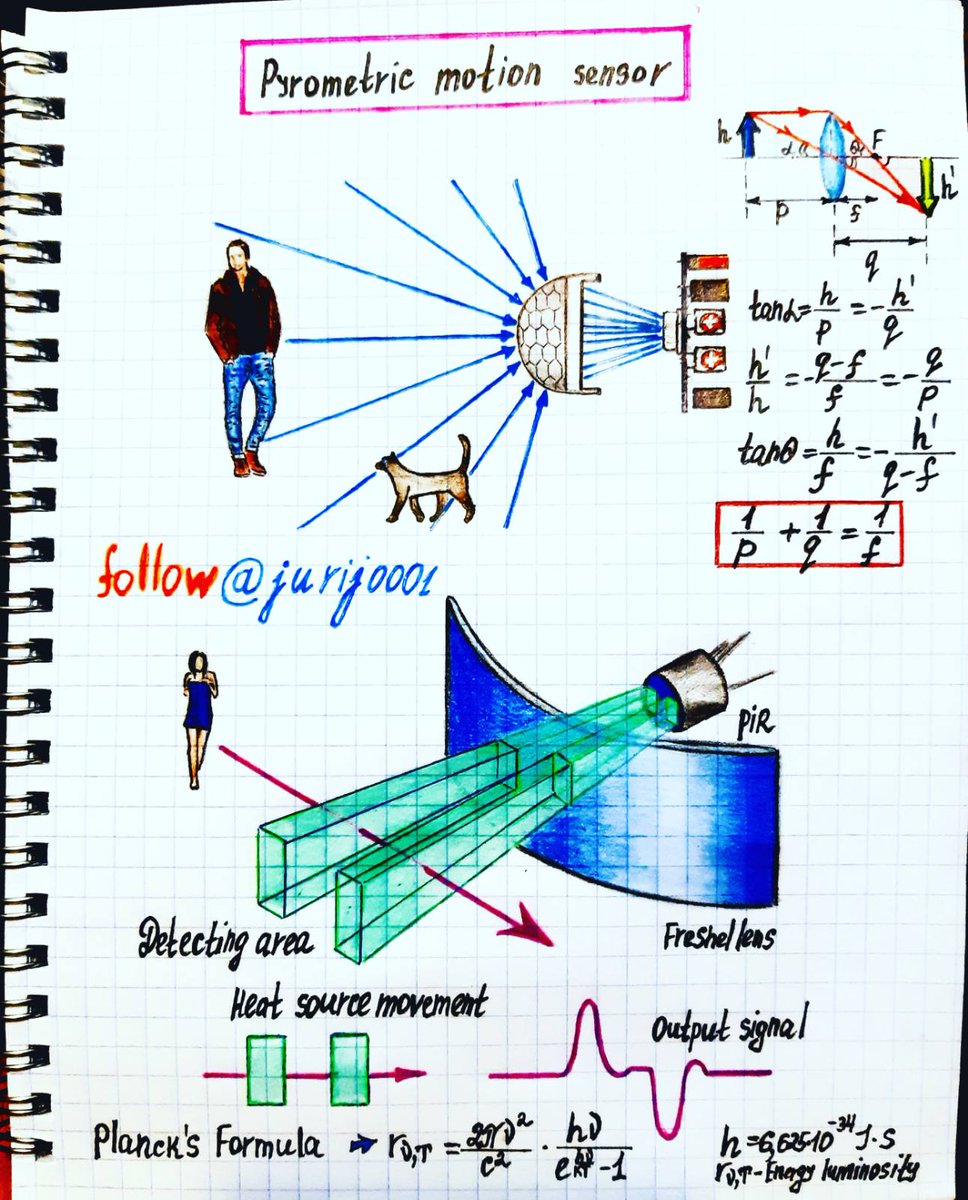 Pyrometric motion sensor
h
α
θ
F
h'
p
f
q
tanα = h/p = -h'/q
h'/h = -(q-f)/f = -q/p
tanθ = h/f = -h'/(q-f)
1/p + 1/q = 1/f
follow @jurij0001
PiR
Detecting area
Freshel lens
Heat source movement
Output signal
Planck's Formula → rν,T = 2πν²/c² · hν/(e^(hν/kT) - 1)
h = 6,625·10⁻³⁴ J·S
rν,T - Energy luminosity